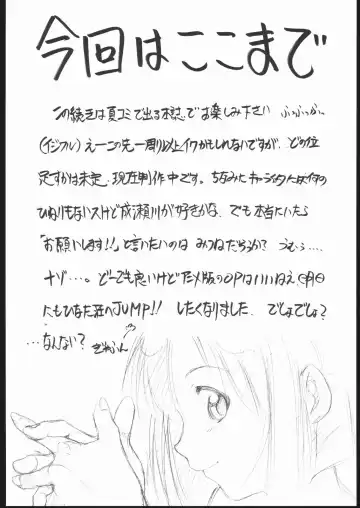 今回はここまで
この続きは夏コミで出る本誌でお楽しみ下さい ふふふふ。
(イジワル) えーこの先一周以上イクかもしれないですが、どの位
足すかは未定・現在制作中です。ちなみにキャラクタには何の
ひねりもないスけど成瀬川が好きかな、でも本当にいたら
「お願いします!!」と言いたいのは みつねだろうか? うむぅ…。
ナゾ…。どーでも良いけどアニメ版のOPはいいねえ 明日
にもひなた荘へJUMP!! したくなりました。でしょでしょ?
…なんない?